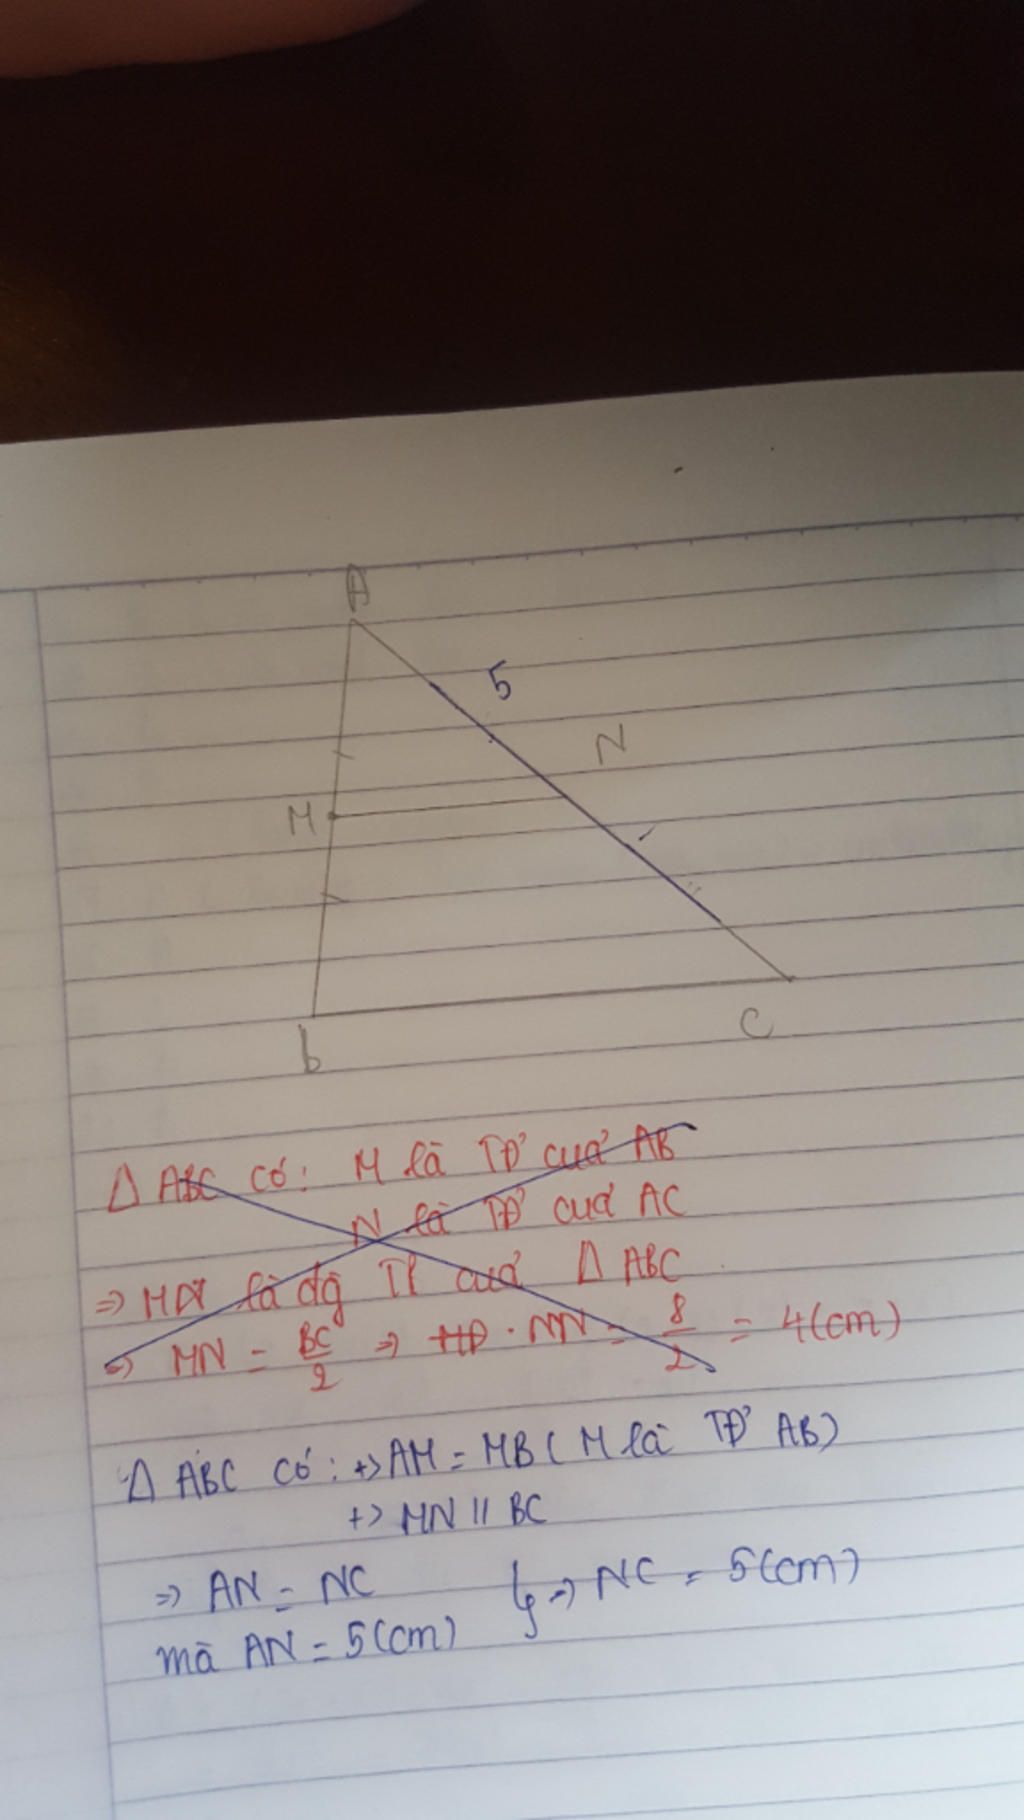 A
5
N
M
b
C
Δ ABC có: M là TĐ' của AB
N là TĐ' của AC
=> MN là đg TB của Δ ABC
=> MN = BC/2 => MN = 8/2 = 4(cm)
Δ ABC có: +> AM = MB ( M là TĐ' AB)
+> MN // BC
=> AN = NC } => NC = 5(cm)
mà AN = 5(cm)